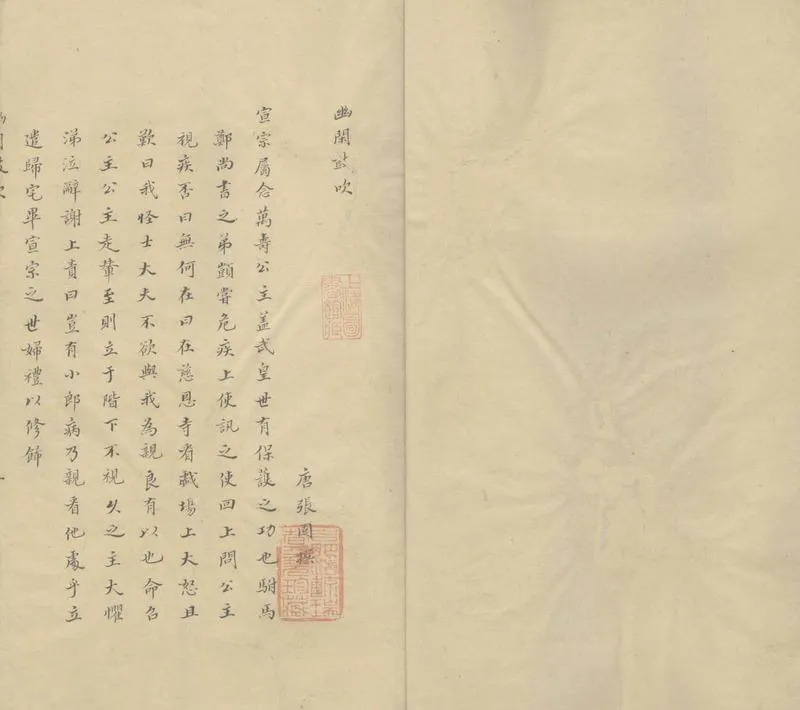 幽閑鼓吹
唐張固撰
宣宗屬念萬壽公主盖武皇世有保護之功也駙馬
鄭尚書之弟顗嘗危疾上使訊之使回上問公主
視疾否曰無何在曰在慈恩寺看戲場上大怒且
歎曰我怪士大夫不欲與我為親良有以也命召
公主公主走輦至則立于階下不視久之主大懼
涕泣辭謝上責曰豈有小郎病乃親看他處乎立
遣歸宅畢宣宗之世婦禮以修飾